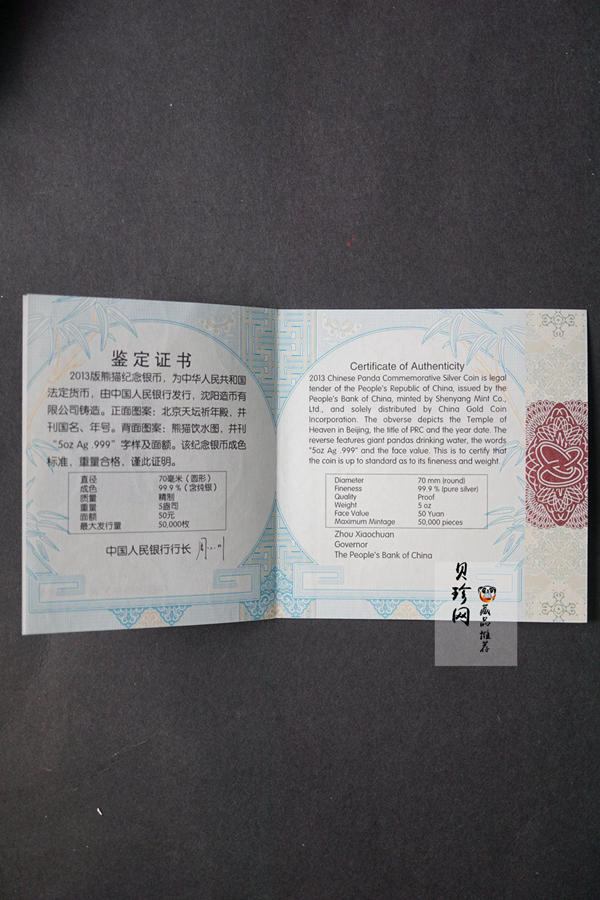 鉴定证书
2013版熊猫纪念银币，为中华人民共和国
法定货币，由中国人民银行发行，沈阳造币有
限公司铸造。正面图案：北京天坛祈年殿，并
刊国名、年号。背面图案：熊猫饮水图，并刊
“5oz Ag .999”字样及面额。该纪念银币成色
标准，重量合格，谨此证明。
直径 70毫米（圆形）
成色 99.9％（含纯银）
质量 精制
重量 5盎司
面额 50元
最大发行量 50,000枚
中国人民银行行长
Certificate of Authenticity
2013 Chinese Panda Commemorative Silver Coin is legal
tender of the People's Republic of China, issued by the
People's Bank of China, minted by Shenyang Mint Co.,
Ltd., and solely distributed by China Gold Coin
Incorporation. The obverse depicts the Temple of
Heaven in Beijing, the title of PRC and the year date. The
reverse features giant pandas drinking water, the words
"5oz Ag .999" and the face value. This is to certify that
the coin is up to standard as to its fineness and weight.
Diameter 70 mm (round)
Fineness 99.9 % (pure silver)
Quality Proof
Weight 5 oz
Face Value 50 Yuan
Maximum Mintage 50,000 pieces
Zhou Xiaochuan
Governor
The People's Bank of China
贝珍网
藏品推荐